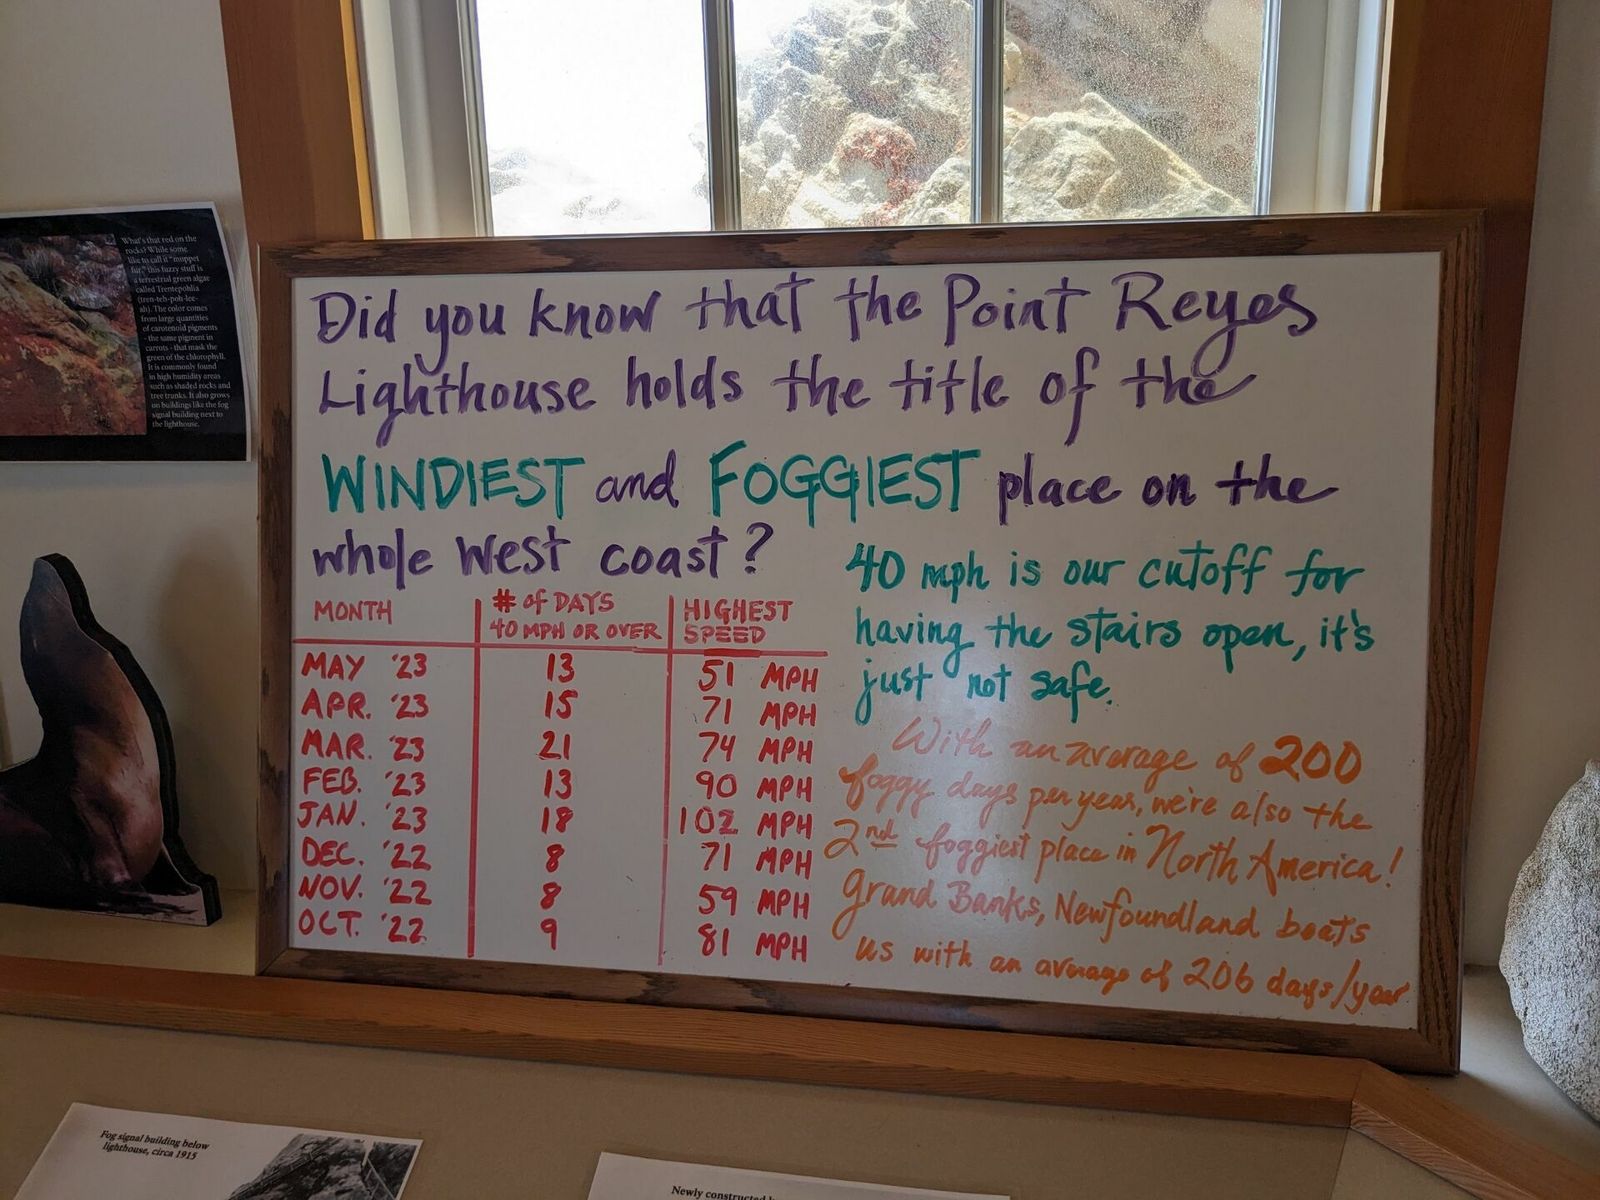 What's that red on the
rocks? While some
like to call it "muppet
fur," this fuzzy stuff is
a terrestrial green algae
called Trentepohlia
(tren-teh-poh-lee-
ah). The color comes
from large quantities
of carotenoid pigments
- the same pigment in
carrots - that mask the
green of the chlorophyll.
It is commonly found
in high humidity areas
such as shaded rocks and
tree trunks. It also grows
on buildings like the fog
signal building next to
the lighthouse.
Did you know that the Point Reyes
Lighthouse holds the title of the
WINDIEST and FOGGIEST place on the
whole West coast?
MONTH # of DAYS 40 MPH OR OVER HIGHEST SPEED
MAY '23 13 51 MPH
APR. '23 15 71 MPH
MAR. '23 21 74 MPH
FEB. '23 13 90 MPH
JAN. '23 18 102 MPH
DEC. '22 8 71 MPH
NOV. '22 8 59 MPH
OCT. '22 9 81 MPH
40 mph is our cutoff for
having the stairs open, it's
just not safe.
With an average of 200
foggy days per year, we're also the
2nd foggiest place in North America!
Grand Banks, Newfoundland beats
us with an average of 206 days/year
Fog signal building below
lighthouse, circa 1915
Newly constructed